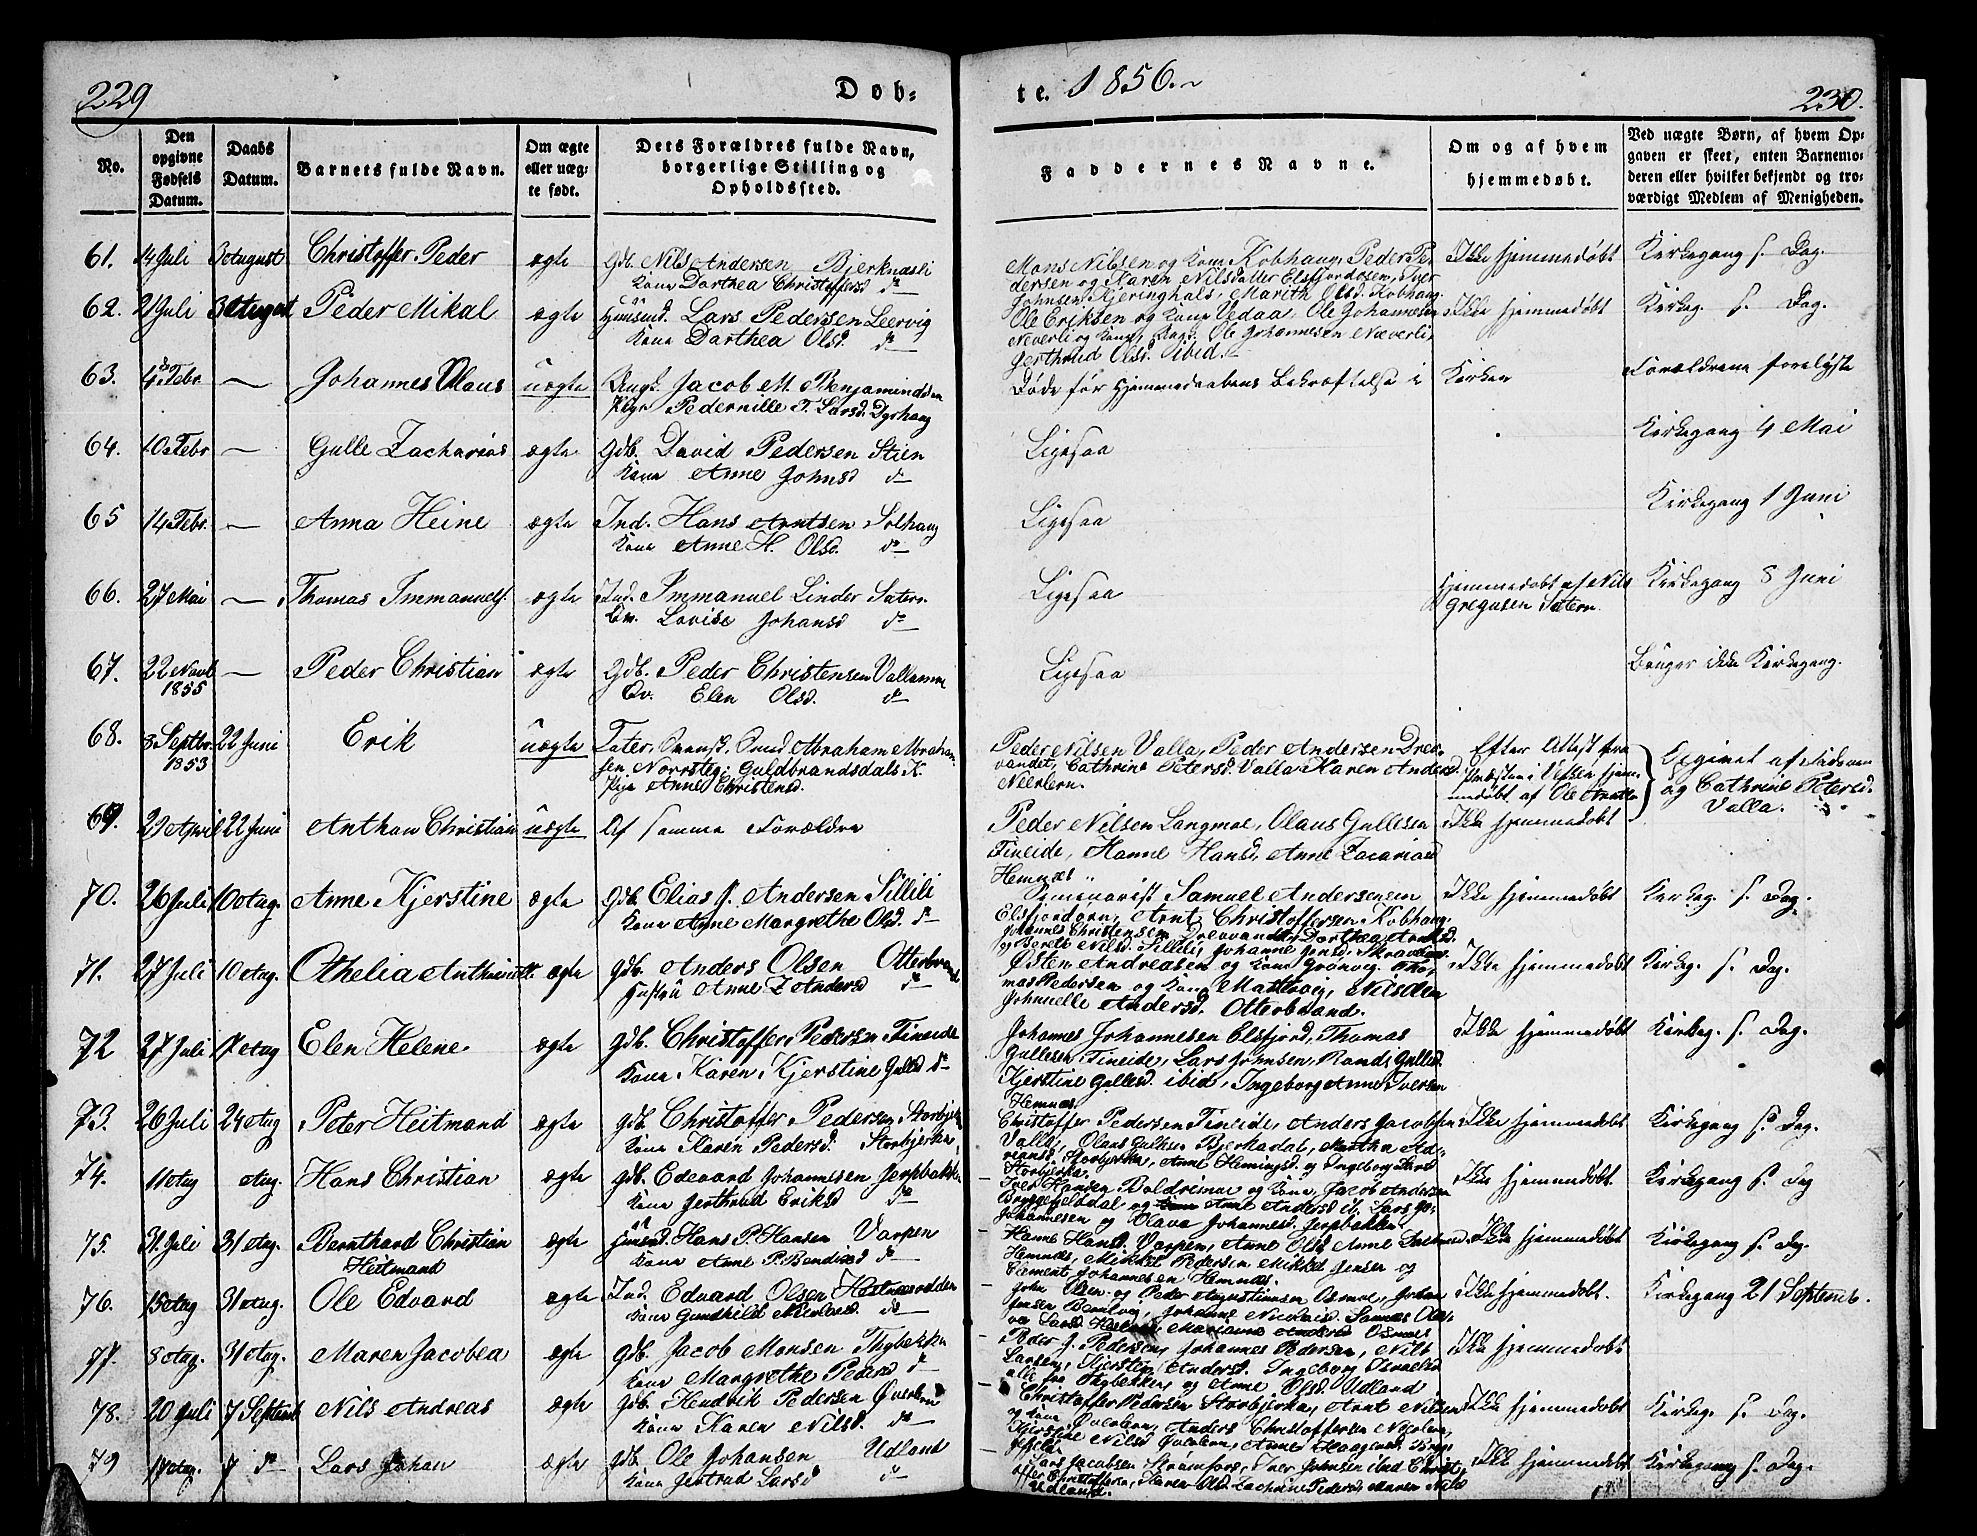 229
Døb-
te. 1856.
230.
No.
Den opgivne Fødsels Datum.
Daabs Datum.
Barnets fulde Navn.
Om ægte eller uægte født.
Dets Forældres fulde Navn, borgerlige Stilling og Opholdssted.
Faddernes Navne.
Om og af hvem hjemmedøbt.
Ved uægte Børn, af hvem Opgaven er skeet, enten Barnemoderen eller hvilket bekjendt og troværdigt Medlem af Menigheden.
61. 14 Juli 3 August Christoffer Peder ægte Gdb. Nils Andersen Bjerknæsli
Kone Dorthea Christoffersd do
Mons Nilsen og Kone Kobhaug, Peder Pe
dersen og Karen Nilsdatter Elsfjordosen, Iver
Johnsen Kjeringhals, Marith Olsd. Kobhaug
Ikke hjemmedøbt
Kirkegang s. Dag.
62. 21 Juli 3 August Peder Mikal ægte Huusmd. Lars Pedersen Leervig
Kone Dorthea Olsd. do
Ole Eriksen og Kone Vedaa, Ole Johannesen
Neverli og Kone, Ole Johannesen Næverli,
Gerthrud Olsd. ibid.
Ikke hjemmedøbt
Kirkeg. s. Dag.
63. 4 Febr. — Johannes Olaus uægte Ungk. Jacob M. Benjaminsen
Pige Pedernille T. Larsd. Dyrhaug
Døde før Hjemmedaabens Bekræftelse i Kirken
Forældrene forelyste
64. 10 Febr — Gulle Zacharias ægte Gdb. David Pedersen Stien
Kone Anne Johnsd do
Ligesaa
Kirkegang 4 Mai
65 14 Febr. — Anna Heine ægte Ind. Hans Arntsen Solhaug
Kone Anne H. Olsd. do
Ligesaa
Kirkegang 1 Juni
66. 27 Mai — Thomas Immanuel ægte Ind. Immanuel Linder Sætern
Qv. Lovise Johansd do
Ligesaa
Hjemmedøbt af Nils
Gregusen Sætern.
Kirkegang 8 Juni
67. 22 Novb 1855 — Peder Christian ægte Gdb. Peder Christensen Vallamne
Qv. Elen Olsd. do
Ligesaa
Bruger ikke Kirkegang.
68. 3 Septbr. 1853 22 Juni Erik uægte Tater, Svensk. Abraham Abraham
sen Norrsteg, Guldbrandsdals K.
Pige Anne Christensd.
Peder Nilsen Valla, Peder Andersen Drev
vandet, Cathrine Petersd. Valla, Karen Andersd.
Neerlern.
Efter Attest fra
Præsten i Vefsen hjem
medøbt af Ole
Opgivet af Faderen
og Cathrine Petersd.
Valla.
69. 29 April 22 Juni Anthon Christian uægte Af samme Forældre
Peder Nilsen Langmoe, Olaus Gullesen
Fineide, Hanne Hansd., Anne Zacariasd
Hemnæs
Ikke hjemmedøbt
70. 26 Juli 10 Aug. Anne Kjerstine ægte Gdb. Elias J. Andersen Sillili
Kone Anne Margrethe Olsd. do
Seminarist Samuel Andersensen
Elsfjorden, Arnt Christoffersen Kobhaug,
Johannes Christensen Drevvandet, Dorthea Arntsd.
og Berete Nilsd. Sillili, Johanne Jensd.
Ikke hjemmedøbt
Kirkeg. s. Dag.
71. 27 Juli 10 Aug. Othelia Anthonette ægte Gdb. Anders Olsen Otterbrand
Hustru Anne Z Andersd do
Østen Andreasen og Kone Grønvig, Tho
mas Pedersen og Kone Mastervig, Nils
Johnelle Andersd. Otterbrand.
Ikke hjemmedøbt
Kirkeg. s. Dag.
72 27 Juli 17 Aug Elen Helene ægte Gdb. Christoffer Pedersen Fineide
Kone Karen Kjerstine Gullsd do
Johannes Johannesen Elsfjord, Thomas
Gullesen Fineide, Lars Jonsen, Randi Gullesd.
Kjerstine Gullesd. ibid, Ingeborg Anne Iversen
Hemnæs
Ikke hjemmedøbt
Kirkeg. s. Dag.
73. 26 Juli 24 Aug Peter Heitmand ægte Gdb Christoffer Pedersen Storbjerken
Kone Karen Pedersd. Storbjerken
Christoffer Pedersen Fineide, Anders Jacobsen
Valla, Olaus Bjerkadal, Martha Ad
riansd. Storbjerka, Anne Hemingsd. og Ingeborg Larsd
Storbjerka.
Ikke hjemmedøbt
Kirkegang s. Dag.
74. 11 Aug Aug. Hans Christian ægte Gdb. Edevard Johannesen Jerpbakken
Kone Gerthrud Eriksd do
Iver Hansen Baldrimoe og Kone, Jacob Andersen
Bryggefjeldal og Anne Andersd ib. Lars Jo
Johannesen og Olava Johannesd. Jerpbakken
Ikke hjemmedøbt
Kirkegang s. Dag
75. 31 Juli 31 Aug. Bernthard Christian Heitmand ægte Huusmd. Hans P. Hansen Varpen
Kone Anne P. Bendixsd do
Hanne Hansd. Varpen, Anne Olsd Anne
Hemnæs, Mikkel Pedersen Mikkel Jensen og
Clement Johannesen Hemnæs.
Ikke hjemmedøbt
Kirkegang s. Dag.
76. 15 Aug 31 Aug. Ole Edvard ægte Ind. Edvard Olsen Hestnæsodden
Kone Gundhild Nicolaisd. do
John Olsen og Peder Augustinusen Osmoe, Johan
Jensen Bomlvig, Johanna Nicolaisd. Samnæs
Larsd Mariann Andersd Osmoe
Ikke hjemmedøbt.
Kirkegang 21 Septemb.
77. 3 Aug. 31 Aug. Maren Jacobea ægte Gdb. Jacob Monsen Thybækken
Kone Margrethe Pedersd do
Peder J. Pedersen, Johannes Pedersen, Nils
Larsen, Kjersten Andersd. Ingeborg
alle fra Thybækken og Anne Olsd. Udland
Ikke hjemmedøbt
78. 20 Juli 7 Septemb Nils Andreas ægte Gdb. Hendrik Pedersen Øverleir
Kone Karen Nilsd. do
Christoffer Pedersen Storbjerka, Arnt Nilsen
og Kone, Anders Christoffersen
Kjerstine Nilsd
Ikke hjemmedøbt
Kirkeg. s. Dag.
79 17 Aug. 7 do Lars Johan ægte Gdb. Ole Johansen Udland
Kone Gertrud Larsd do
Lars Jacobsen Straumfors, Iver Johnsen ibid Christ
offer Christoffersen, Karen Olsd. Zachrine Pedersd Maren Nilsd
Udland.
Ikke hjemmedøbt
Kirkegang s. Dag.